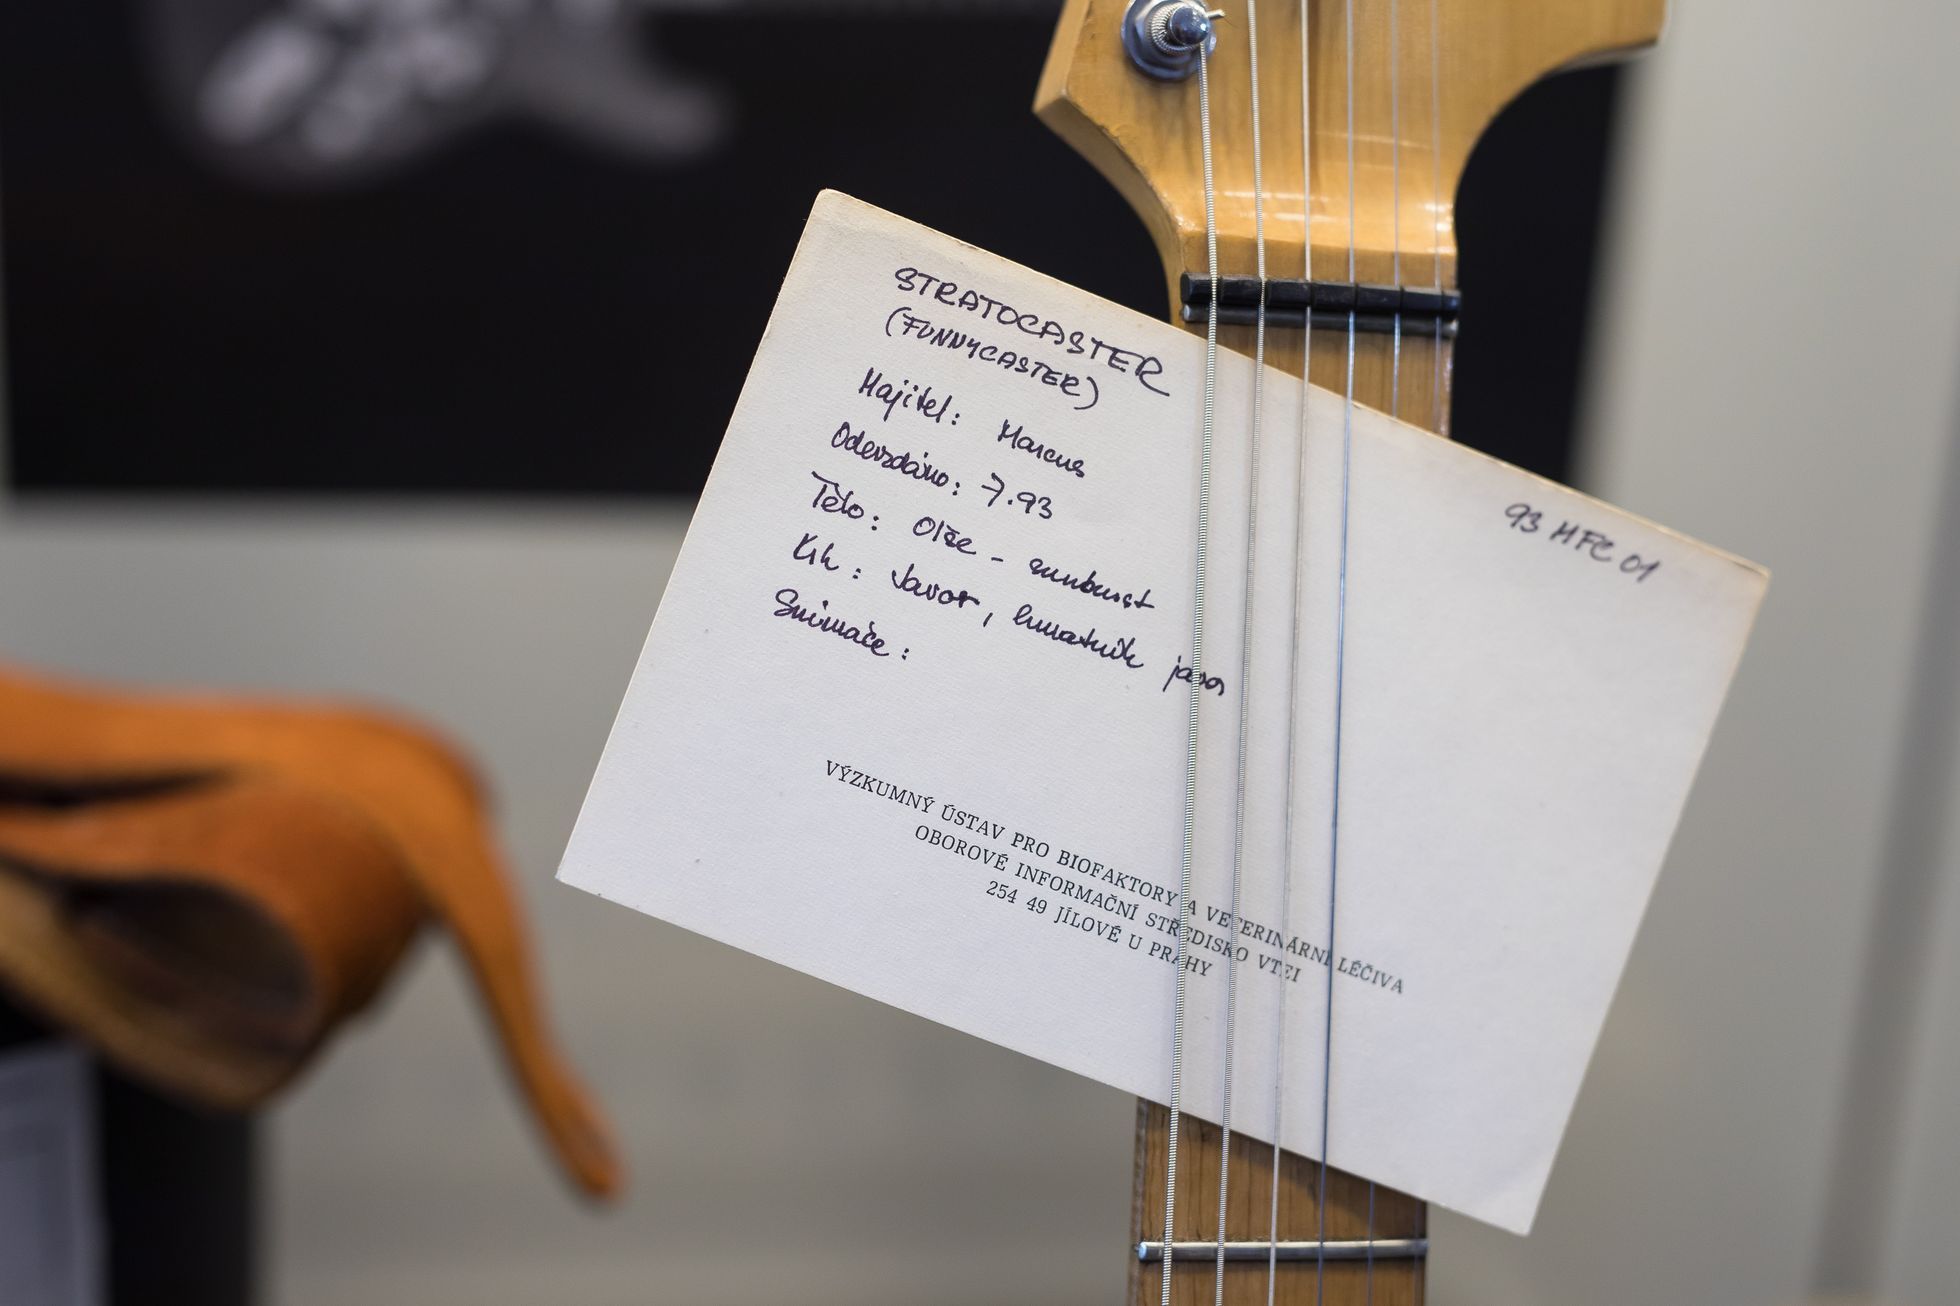 STRATOCASTER
(FUNNYCASTER)
93 MFC 01
Majitel: Marcus
Odevzdáno: 7.93
Tělo: Olše - sunburst
Krk: Javor, hmatník javor
Snímače:
VÝZKUMNÝ ÚSTAV PRO BIOFAKTORY A VETERINÁRNÍ LÉČIVA
OBOROVÉ INFORMAČNÍ STŘEDISKO VTEI
254 49 JÍLOVÉ U PRAHY